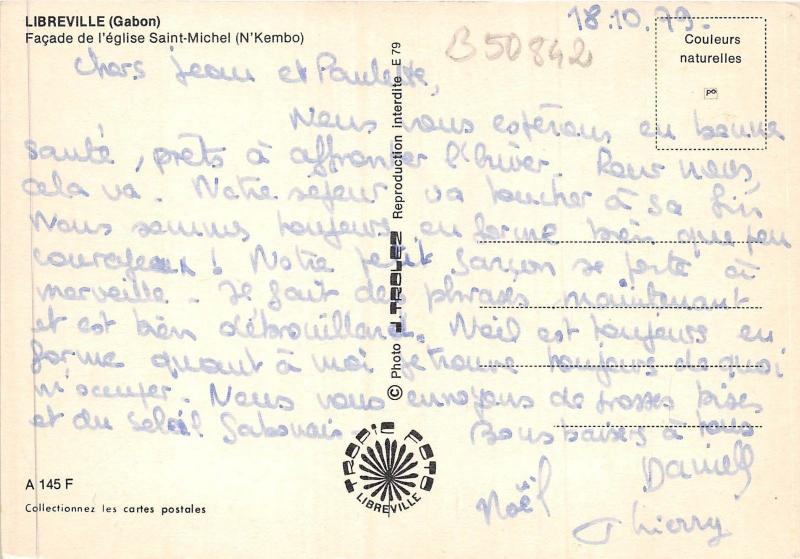 LIBREVILLE (Gabon)
Façade de l'église Saint-Michel (N'Kembo)
18.10.79.
B50842
Couleurs
naturelles
po
Chers Jean et Paulette,
Nous vous espérons en bonne
santé, prêts à affronter l'hiver. Pour nous,
cela va. Notre séjour va toucher à sa fin
Nous sommes toujours en forme bien que peu
courageux ! Notre petit garçon se porte à
merveille. Il fait des phrases maintenant
et est bien débrouillard. Noël est toujours en
forme quant à moi je trouve toujours de quoi
m'occuper. Nous vous envoyons de grosses bises
et du soleil Gabonais. Bons baisers à tous
Danielle
Noël
Thierry
© Photo J. TROLEZ Reproduction interdite E 79
TROPIC FOTO
LIBREVILLE
A 145 F
Collectionnez les cartes postales